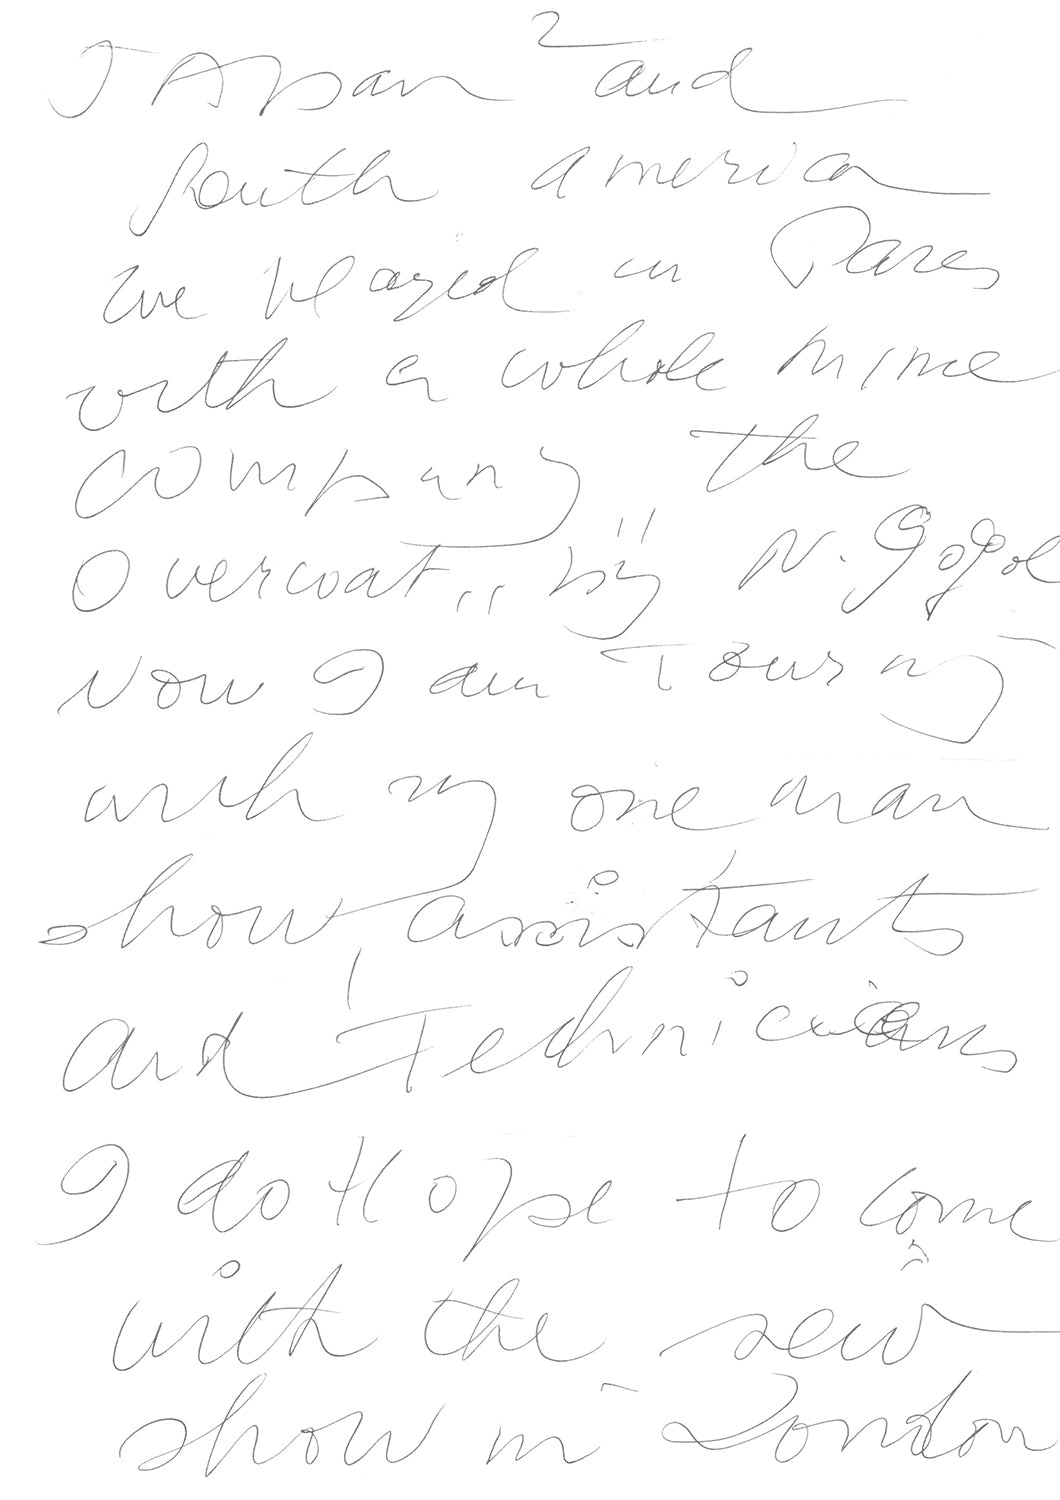 2
Japan and
South America
we played in Paris
with a whole mime
company the
Overcoat,, by N. Gogol
Now I am Touring
with my one man
show, assistants
and Technicians
I do Hope to come
with the new
show in London